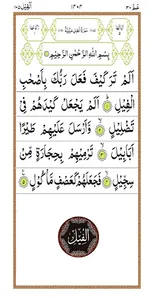 عم ٣٠
١٣٠٢
الفيل ١٠٥
بِسْمِ اللّٰهِ الرَّحْمٰنِ الرَّحِيْمِ
أَلَمْ تَرَ كَيْفَ فَعَلَ رَبُّكَ بِأَصْحٰبِ
الْفِيْلِ ۝١ أَلَمْ يَجْعَلْ كَيْدَهُمْ فِيْ
تَضْلِيْلٍ ۝٢ وَّأَرْسَلَ عَلَيْهِمْ طَيْرًا
أَبَابِيْلَ ۝٣ تَرْمِيْهِمْ بِحِجَارَةٍ مِّنْ
سِجِّيْلٍ ۝٤ فَجَعَلَهُمْ كَعَصْفٍ مَّأْكُوْلٍ ۝٥
اَلْفِيْل